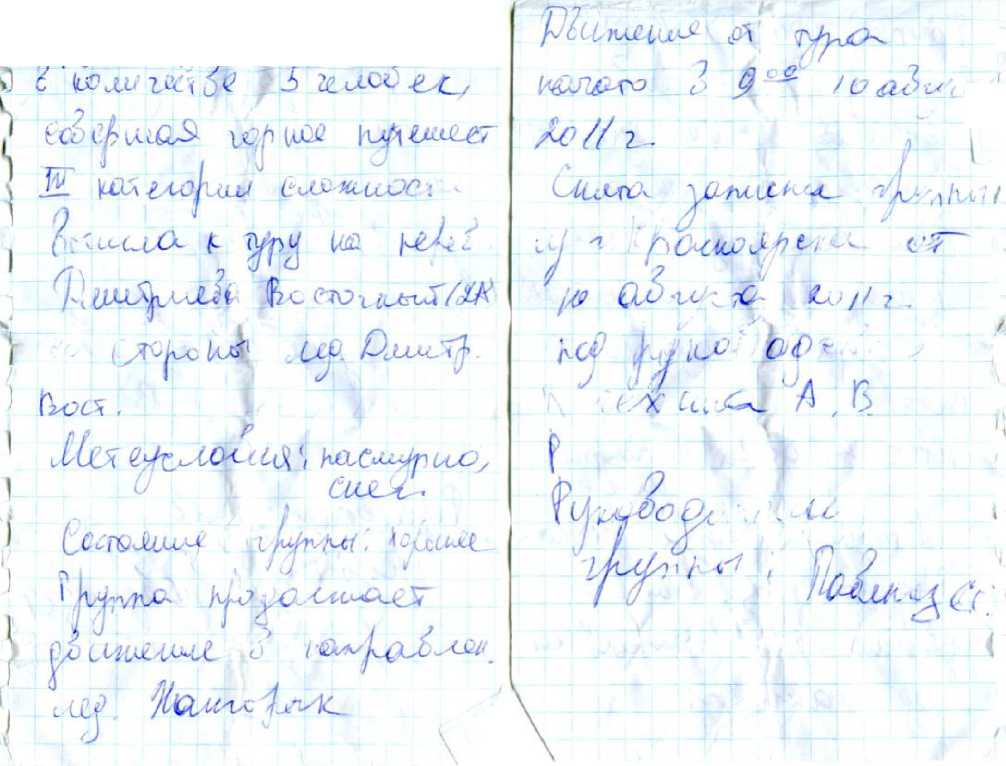 в количестве 5 человек,
совершая горное путешест
III категории сложност
Вышла к туру на
Дмитриева Восточный (2А
стороны лед. Дмитр.
Вост.
Метеусловия: пасмурно,
снег.
Состояние группы: хорошее
Группа продолжает
движение в направлен.
лед.
Движение от тура
начато в 9 00 10 авг
2011 г.
Снята записка группы
из г. Красноярска от
10 августа 2011 г.
под
А. В.
Р
Руковод
группы: